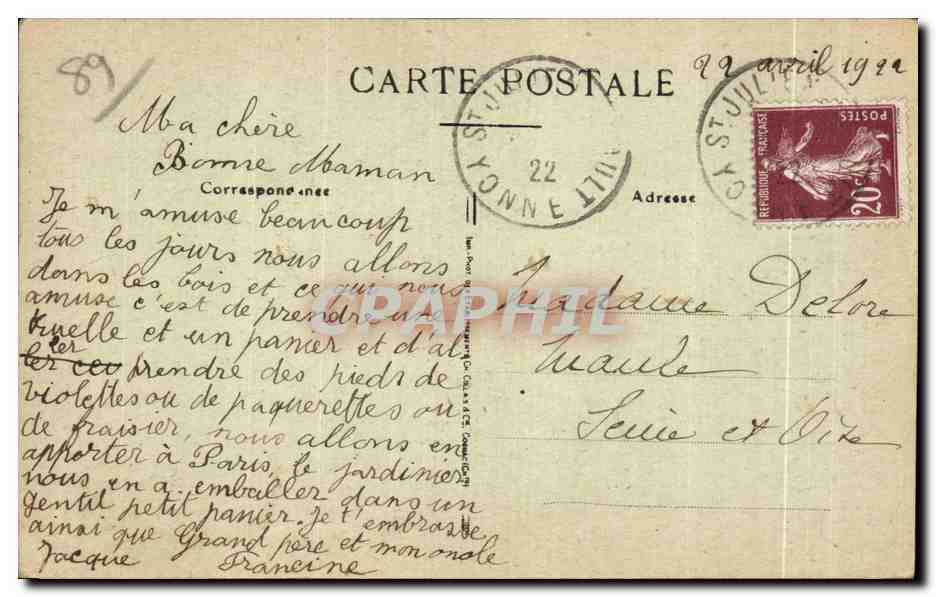 89
22 avril 1922
CARTE POSTALE
Ma chère
Bonne Maman
Correspondance
Adresse
Je m'amuse beaucoup
tous les jours nous allons
dans les bois et ce qui nous
amuse c'est de prendre une
truelle et un panier et d'al
ler
prendre des pieds de
violettes ou de paquerettes ou
de fraisier, nous allons en
apporter à Paris, le jardinier
nous en a emballer dans un
gentil petit panier. Je t'embrasse
ainsi que Grand père et mon oncle
Jacque Francine
Madame Delore
Maule
Seine et Oise
22
REPUBLIQUE FRANÇAISE
POSTES
20c
CPAPHIL